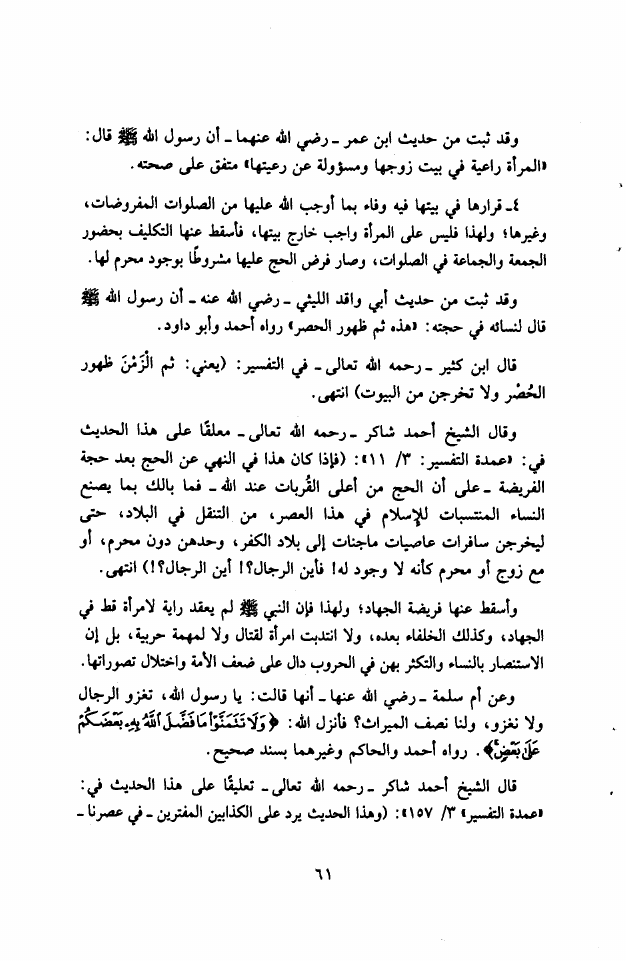 وقد ثبت من حديث ابن عمر ـ رضي الله عنهما ـ أن رسول الله ﷺ قال:
«المرأة راعية في بيت زوجها ومسؤولة عن رعيتها» متفق على صحته.
٤ـ قرارها في بيتها فيه وفاء بما أوجب الله عليها من الصلوات المفروضات،
وغيرها؛ ولهذا فليس على المرأة واجب خارج بيتها، فأسقط عنها التكليف بحضور
الجمعة والجماعة في الصلوات، وصار فرض الحج عليها مشروطًا بوجود محرم لها.
وقد ثبت من حديث أبي واقد الليثي ـ رضي الله عنه ـ أن رسول الله ﷺ
قال لنسائه في حجته: «هذه ثم ظهور الحصر» رواه أحمد وأبو داود.
قال ابن كثير ـ رحمه الله تعالى ـ في التفسير: (يعني: ثم الْزَمْنَ ظهور
الحُصْر ولا تخرجن من البيوت) انتهى.
وقال الشيخ أحمد شاكر ـ رحمه الله تعالى ـ معلقًا على هذا الحديث
في: «عمدة التفسير: ٣/ ١١»: (فإذا كان هذا في النهي عن الحج بعد حجة
الفريضة ـ على أن الحج من أعلى القُربات عند الله ـ فما بالك بما يصنع
النساء المنتسبات للإسلام في هذا العصر، من التنقل في البلاد، حتى
ليخرجن سافرات عاصيات ماجنات إلى بلاد الكفر، وحدهن دون محرم، أو
مع زوج أو محرم كأنه لا وجود له! فأين الرجال؟! أين الرجال؟!) انتهى.
وأسقط عنها فريضة الجهاد؛ ولهذا فإن النبي ﷺ لم يعقد راية لامرأة قط في
الجهاد، وكذلك الخلفاء بعده، ولا انتدبت امرأة لقتال ولا لمهمة حربية، بل إن
الاستنصار بالنساء والتكثر بهن في الحروب دال على ضعف الأمة واختلال تصوراتها.
وعن أم سلمة ـ رضي الله عنها ـ أنها قالت: يا رسول الله، تغزو الرجال
ولا نغزو، ولنا نصف الميراث؟ فأنزل الله: ﴿وَلَا تَتَمَنَّوْا۟ مَا فَضَّلَ ٱللَّهُ بِهِۦ بَعْضَكُمْ
عَلَىٰ بَعْضٍ ۚ﴾. رواه أحمد والحاكم وغيرهما بسند صحيح.
قال الشيخ أحمد شاكر ـ رحمه الله تعالى ـ تعليقًا على هذا الحديث في:
«عمدة التفسير» ٣/ ١٥٧»: (وهذا الحديث يرد على الكذابين المفترين ـ في عصرنا ـ
٦١